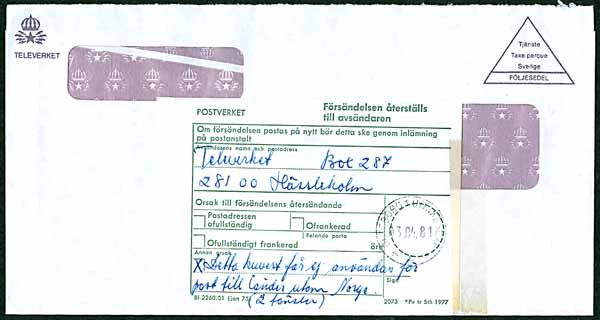 TELEVERKET
Tjänste
Taxe perçue
Sverige
FÖLJESEDEL
POSTVERKET
Försändelsen återställs
till avsändaren
Om försändelsen postas på nytt bör detta ske genom inlämning
på postanstalt
Avsändarens namn och postadress
Televerket Box 287
281 00 Hässleholm
Orsak till försändelsens återsändande
Postadressen
ofullständig
Ofrankerad
Felande porto
Ofullständigt frankerad
öre
Annan orsak
X Detta kuvert får ej användas för
post till länder utom Norge.
(2 fönster)
Sign
13.04.81
Bl 2260.03 (jan 75)
2073 *Pv är Sth 1977